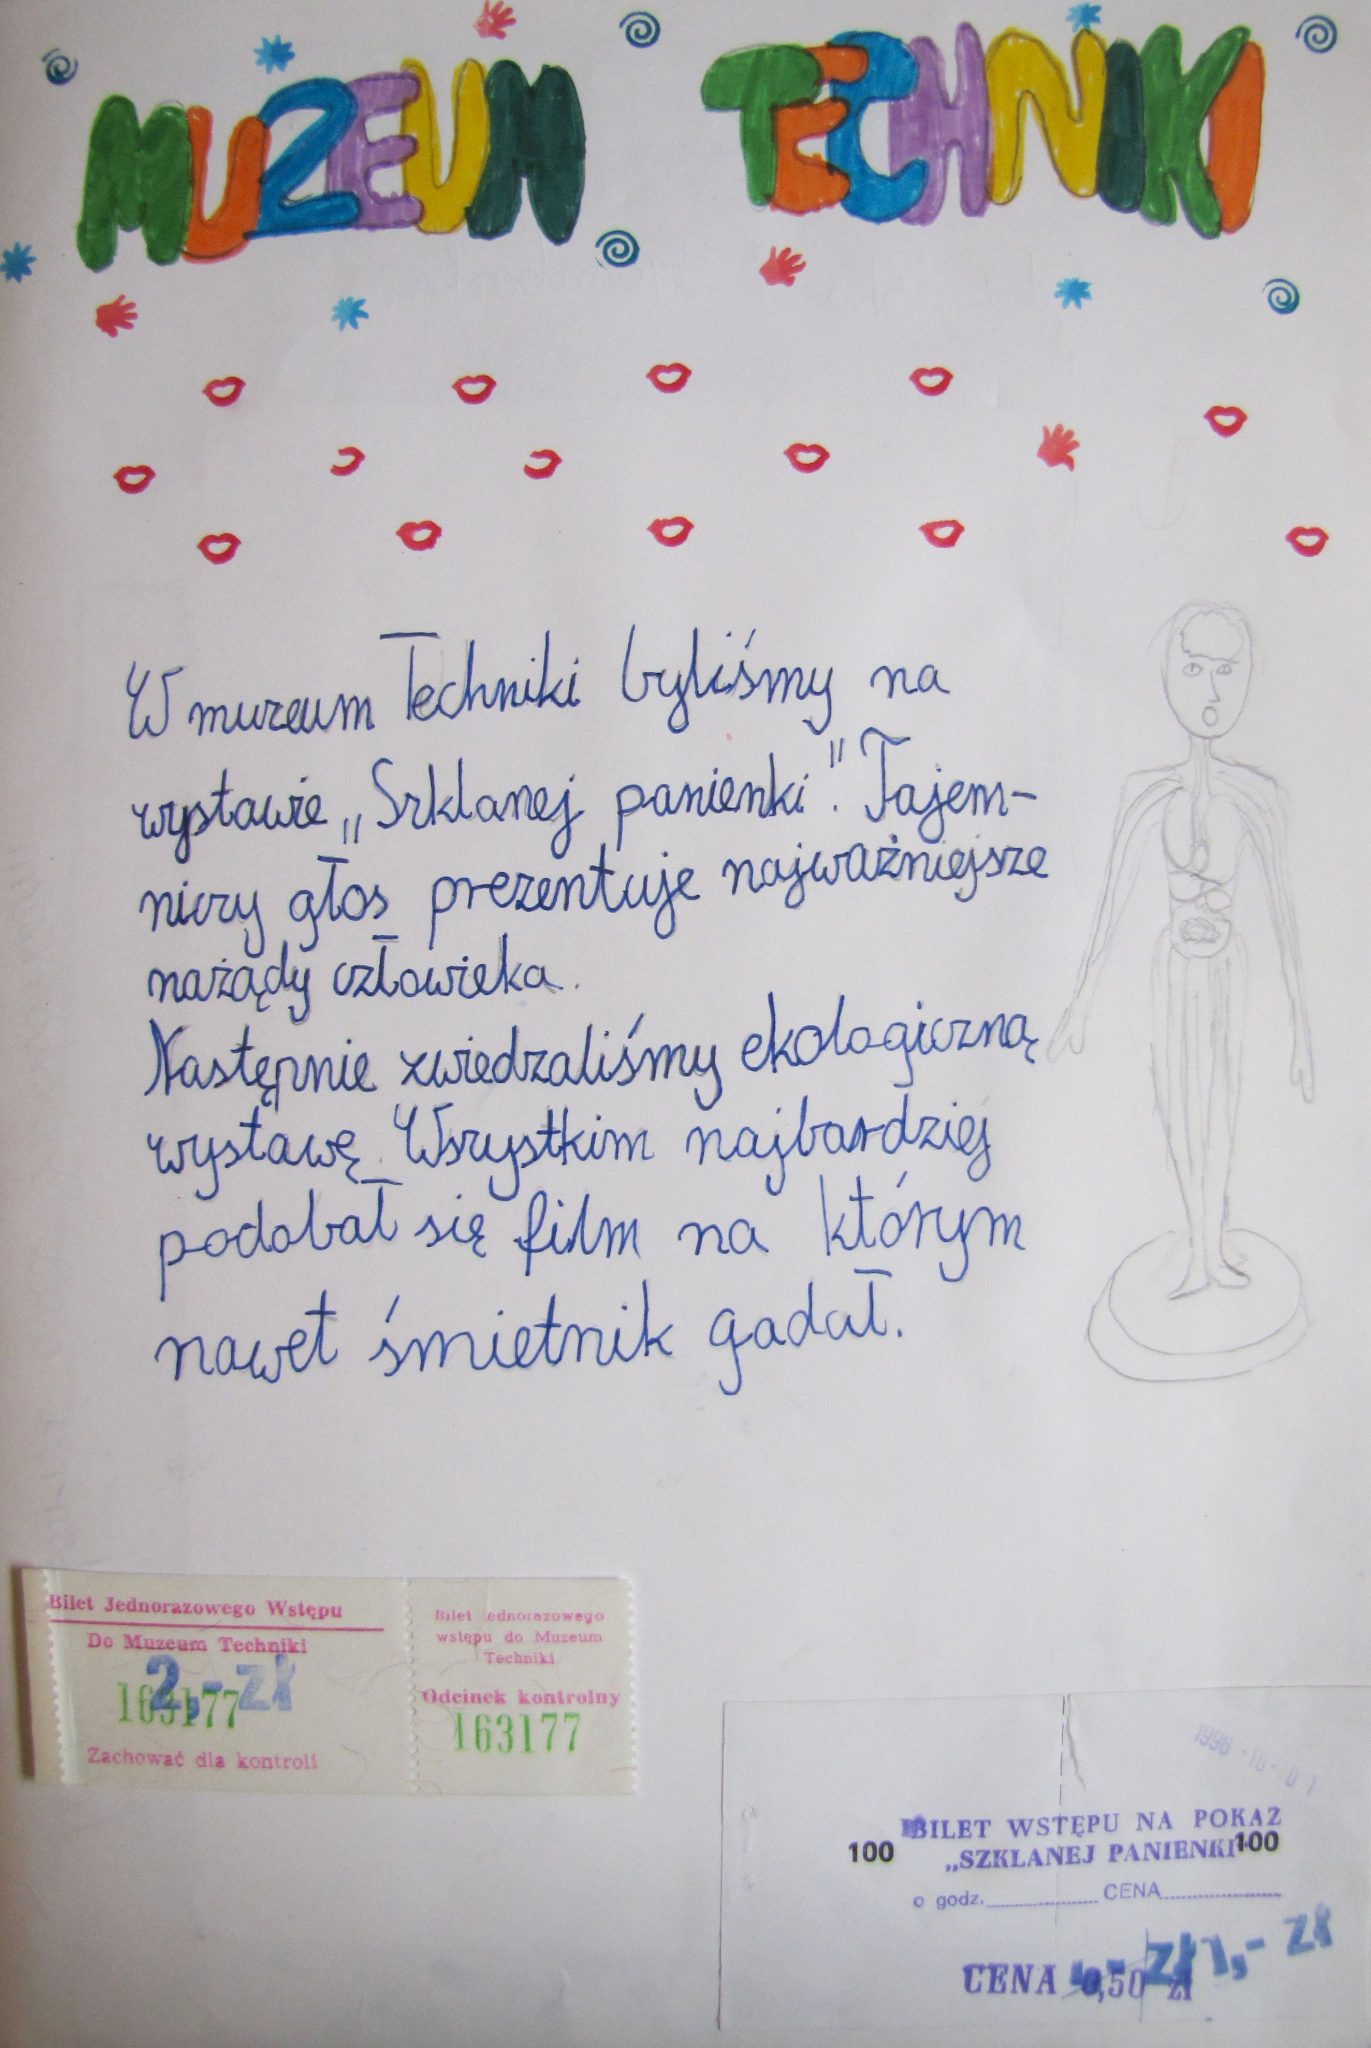 MUZEUM TECHNIKI
W muzeum Techniki byliśmy na
wystawie „Szklanej panienki". Tajem-
niczy głos prezentuje najważniejsze
nażądy człowieka.
Następnie zwiedzaliśmy ekologiczną
wystawę. Wszystkim najbardziej
podobał się film na którym
nawet śmietnik gadał.
Bilet Jednorazowego Wstępu
Do Muzeum Techniki
2,- zł
163177
Zachować dla kontroli
Bilet jednorazowego
wstępu do Muzeum
Techniki
Odcinek kontrolny
163177
1998 -10- 01
BILET WSTĘPU NA POKAZ
100 „SZKLANEJ PANIENKI" 100
o godz. CENA
CENA 0,50 zł 1,- zł